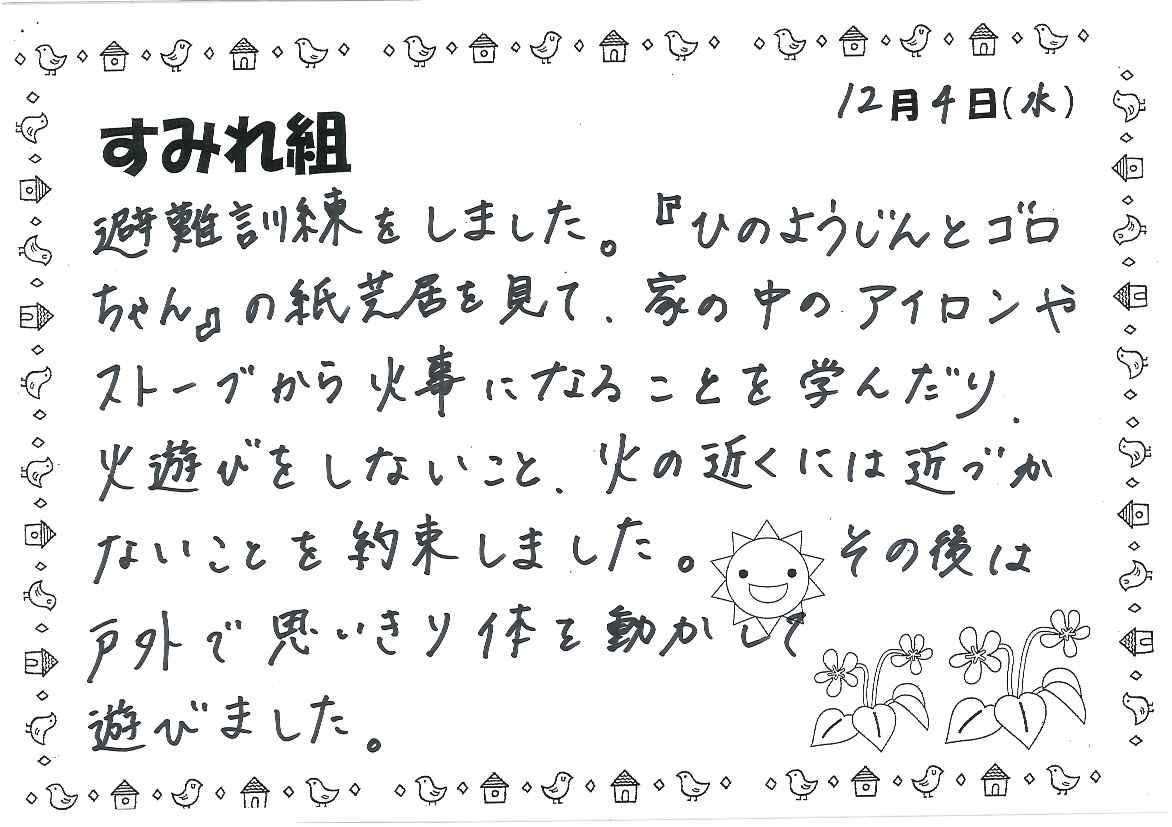 12月4日(水)
すみれ組
避難訓練をしました。『ひのようじんとゴロ
ちゃん』の紙芝居を見て、家の中のアイロンや
ストーブから火事になることを学んだり、
火遊びをしないこと、火の近くには近づか
ないことを約束しました。 その後は
戸外で思いきり体を動かして
遊びました。